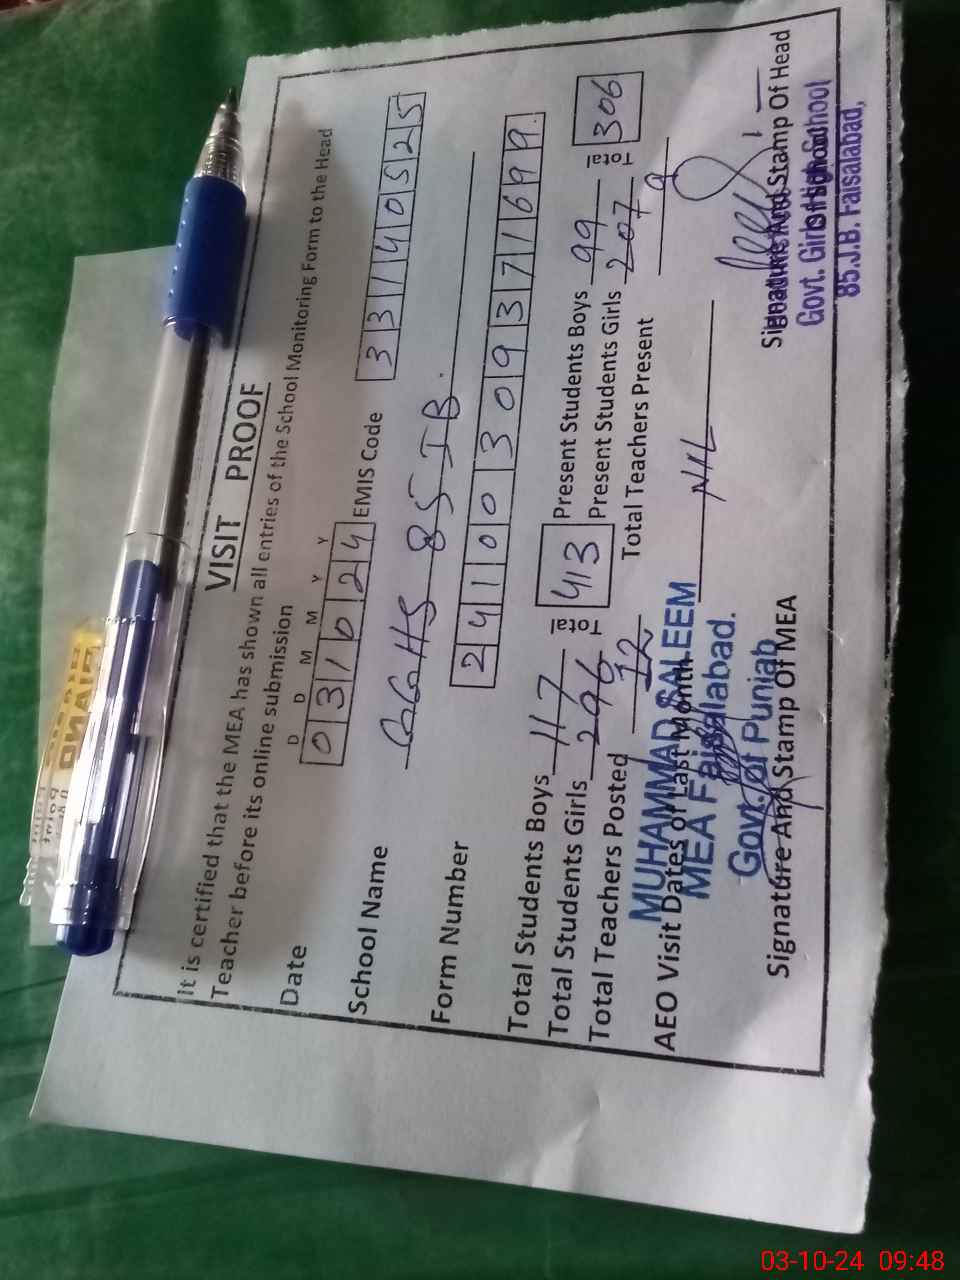 VISIT PROOF
It is certified that the MEA has shown all entries of the School Monitoring Form to the Head
Teacher before its online submission
D D M M Y Y
Date 03/10 24 EMIS Code 33140525
School Name GGHS 85 JB.
Form Number 24100309371699.
Total Students Boys 117 Total 413 Present Students Boys 99 Total 306
Total Students Girls 296 Present Students Girls 207
Total Teachers Posted 12 Total Teachers Present 9
AEO Visit Dates of Last Month NIL
MUHAMMAD SALEEM
MEA Faisalabad.
Govt. of Punjab
Signature And Stamp Of MEA
Signature And Stamp Of Head
Govt. Girls High School
85.J.B. Faisalabad,
PIANO
Point
03-10-24 09:48